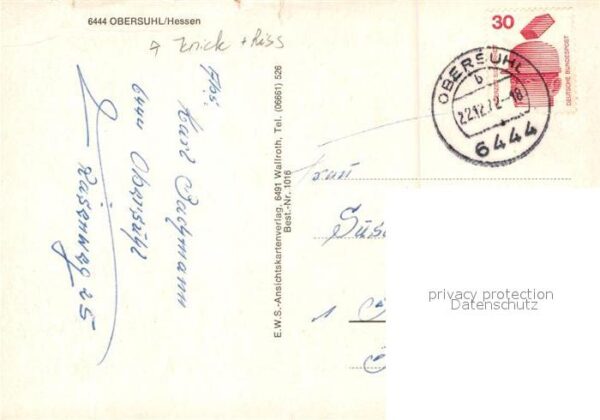 6444 OBERSUHL/Hessen
Knick + Riss
Abs.
Karl
6444 Obersuhl
25
E.W.S.-Ansichtskartenverlag, 6491 Wallroth, Tel. (06661) 526
Best.-Nr. 1016
30
DEUTSCHE BUNDESPOST
OBERSUHL
b
22.12.72-18
6444
Frau
1
privacy protection
Datenschutz